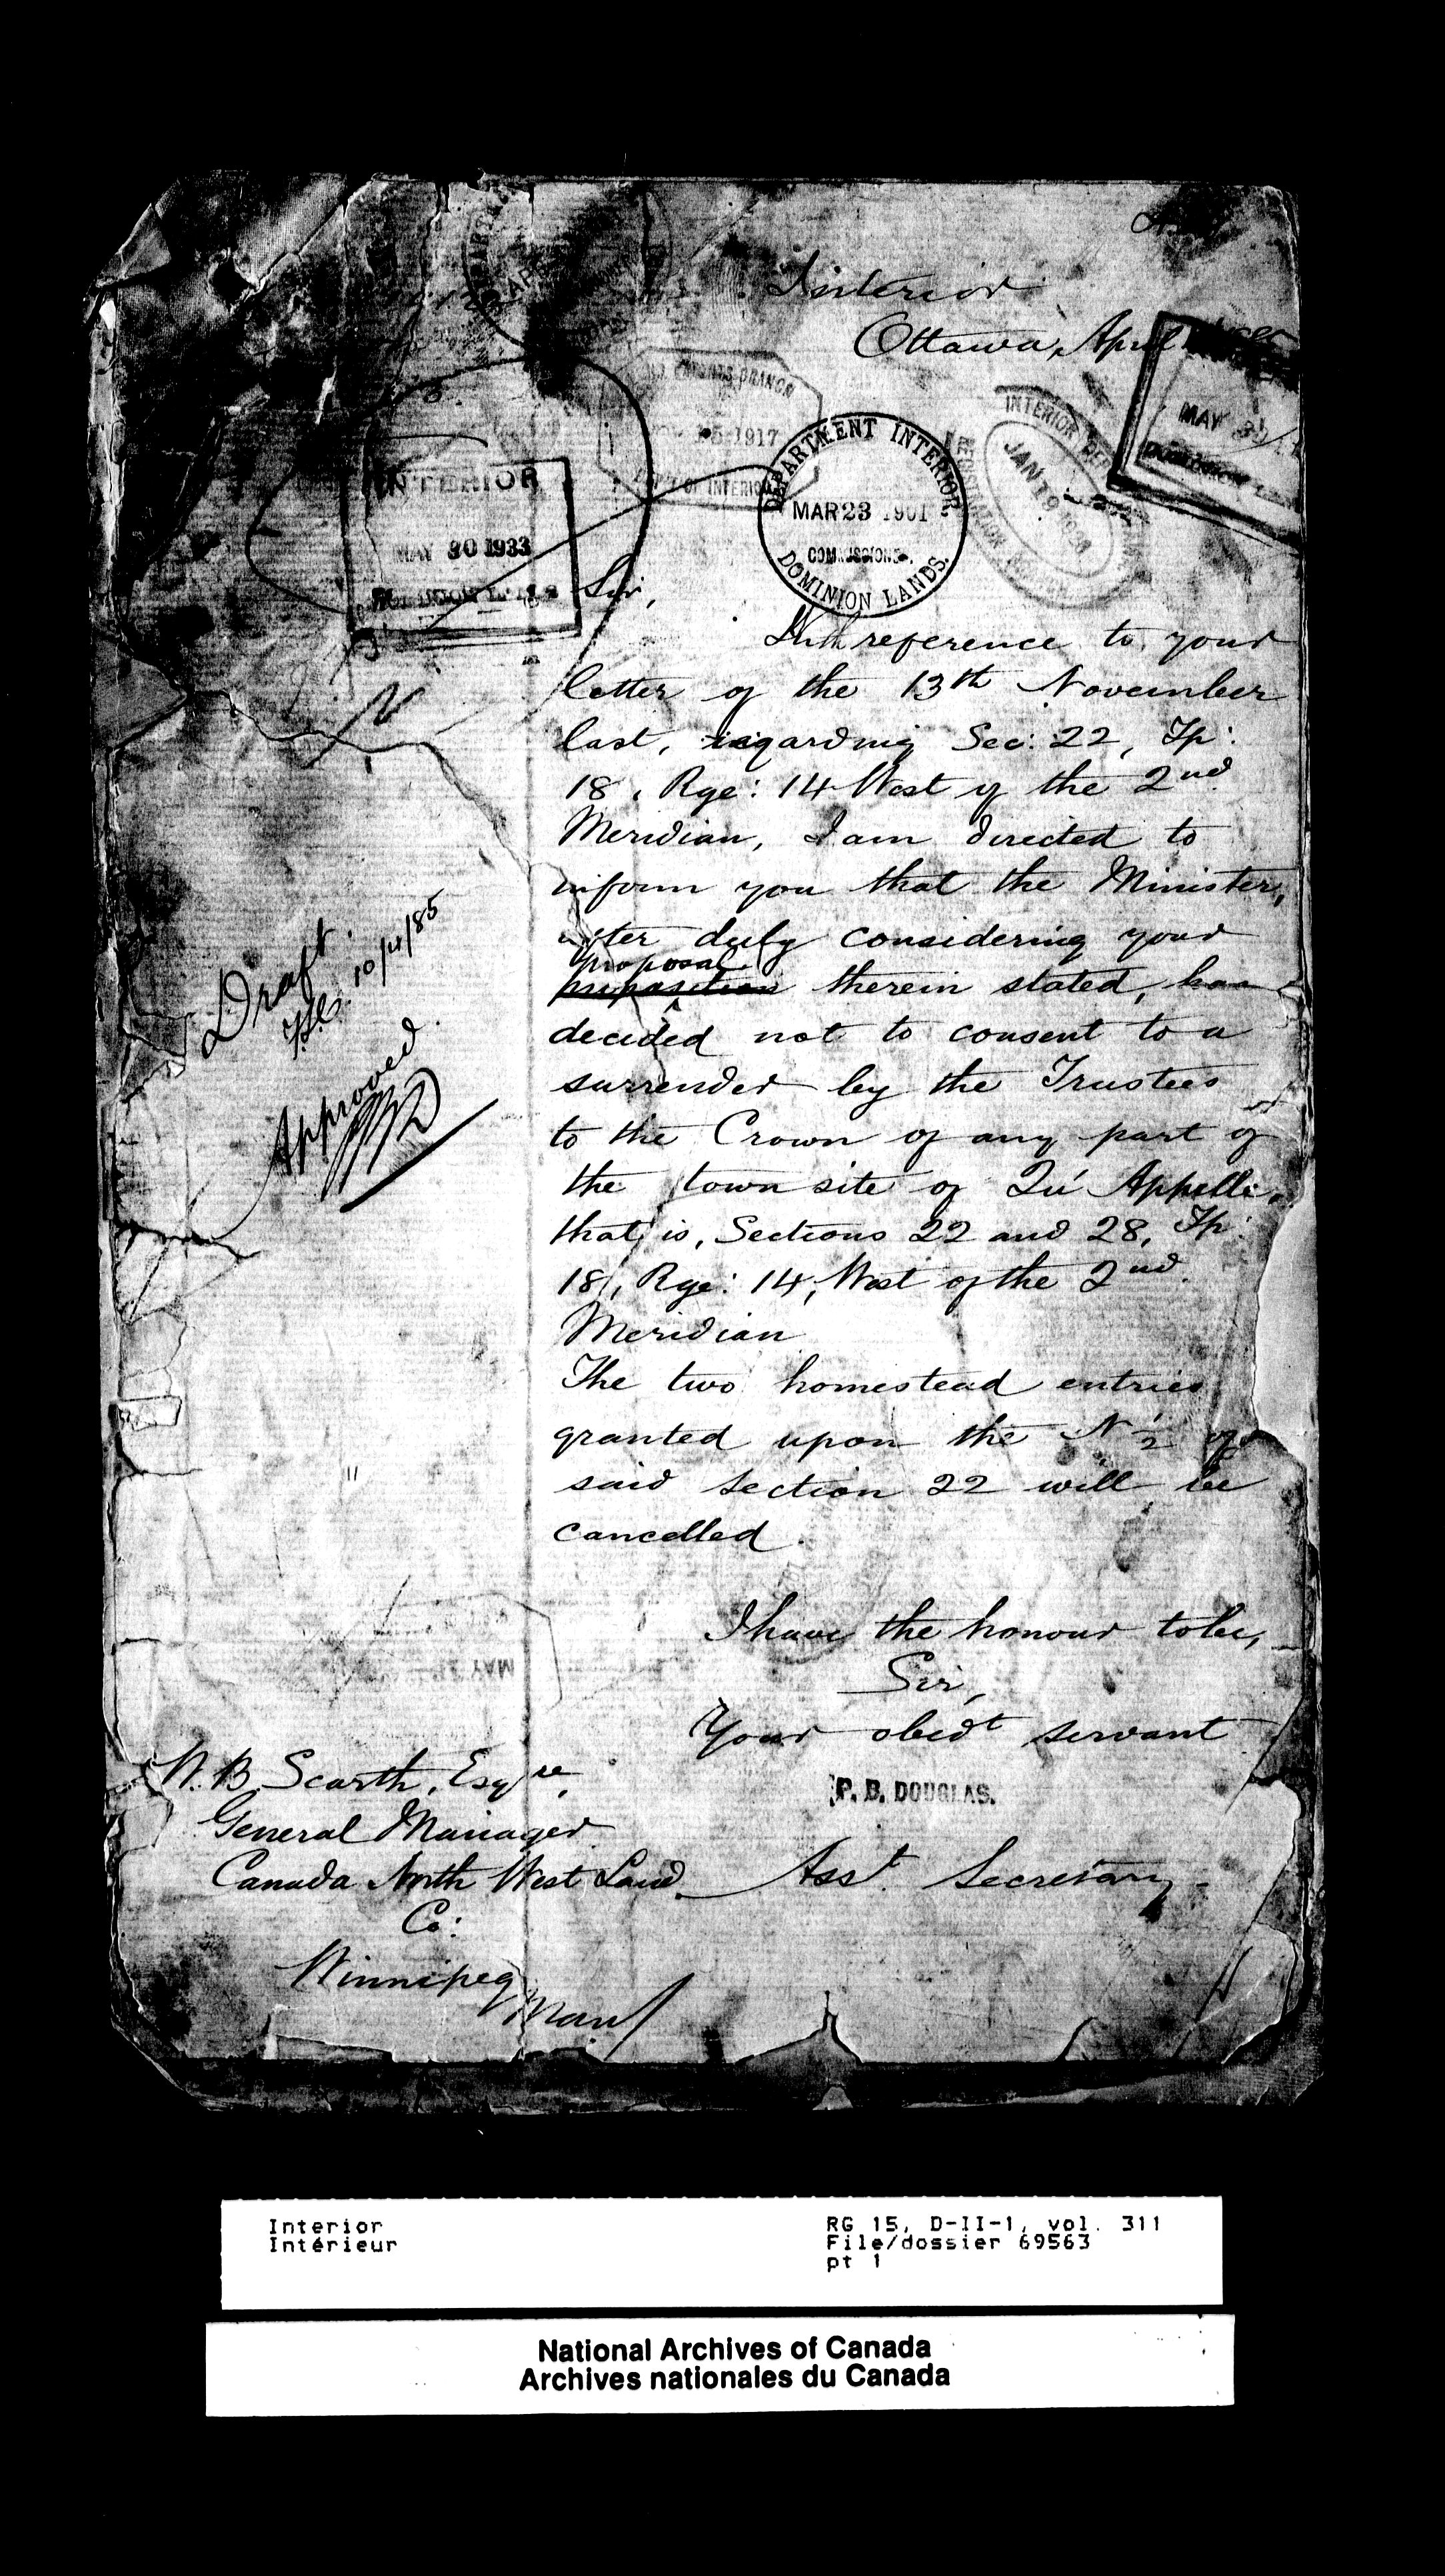 Interior
Ottawa, April
INTERIOR
MAY 30 1933
5-1917
DEP'T OF INTERIOR
DEPARTMENT INTERIOR,
MAR 23 1901
COMMISSIONER.
DOMINION LANDS.
INTERIOR DEPARTMENT
JAN 19 1928
REGISTRATION
MAY 31
Sir,
With reference to your
letter of the 13th November
last, regarding Sec: 22, Tp:
18, Rge: 14 West of the 2nd
Meridian, I am directed to
inform you that the Minister,
after duly considering your
proposal
proposition therein stated, has
decided not to consent to a
surrender by the Trustees
to the Crown of any part of
the town site of Qu'Appelle,
that is, Sections 22 and 28, Tp:
18, Rge: 14, West of the 2nd
Meridian
The two homestead entries
granted upon the N ½ of
said section 22 will be
cancelled.
Draft.
10/4/85
Approved.
I have the honour to be,
Sir,
Your obedt servant
P. B. DOUGLAS.
Asst. Secretary.
W. B. Scarth, Esqre,
General Manager
Canada North West Land
Co:
Winnipeg
Man
Interior
Intérieur
RG 15, D-II-1, vol. 311
File/dossier 69563
pt 1
National Archives of Canada
Archives nationales du Canada